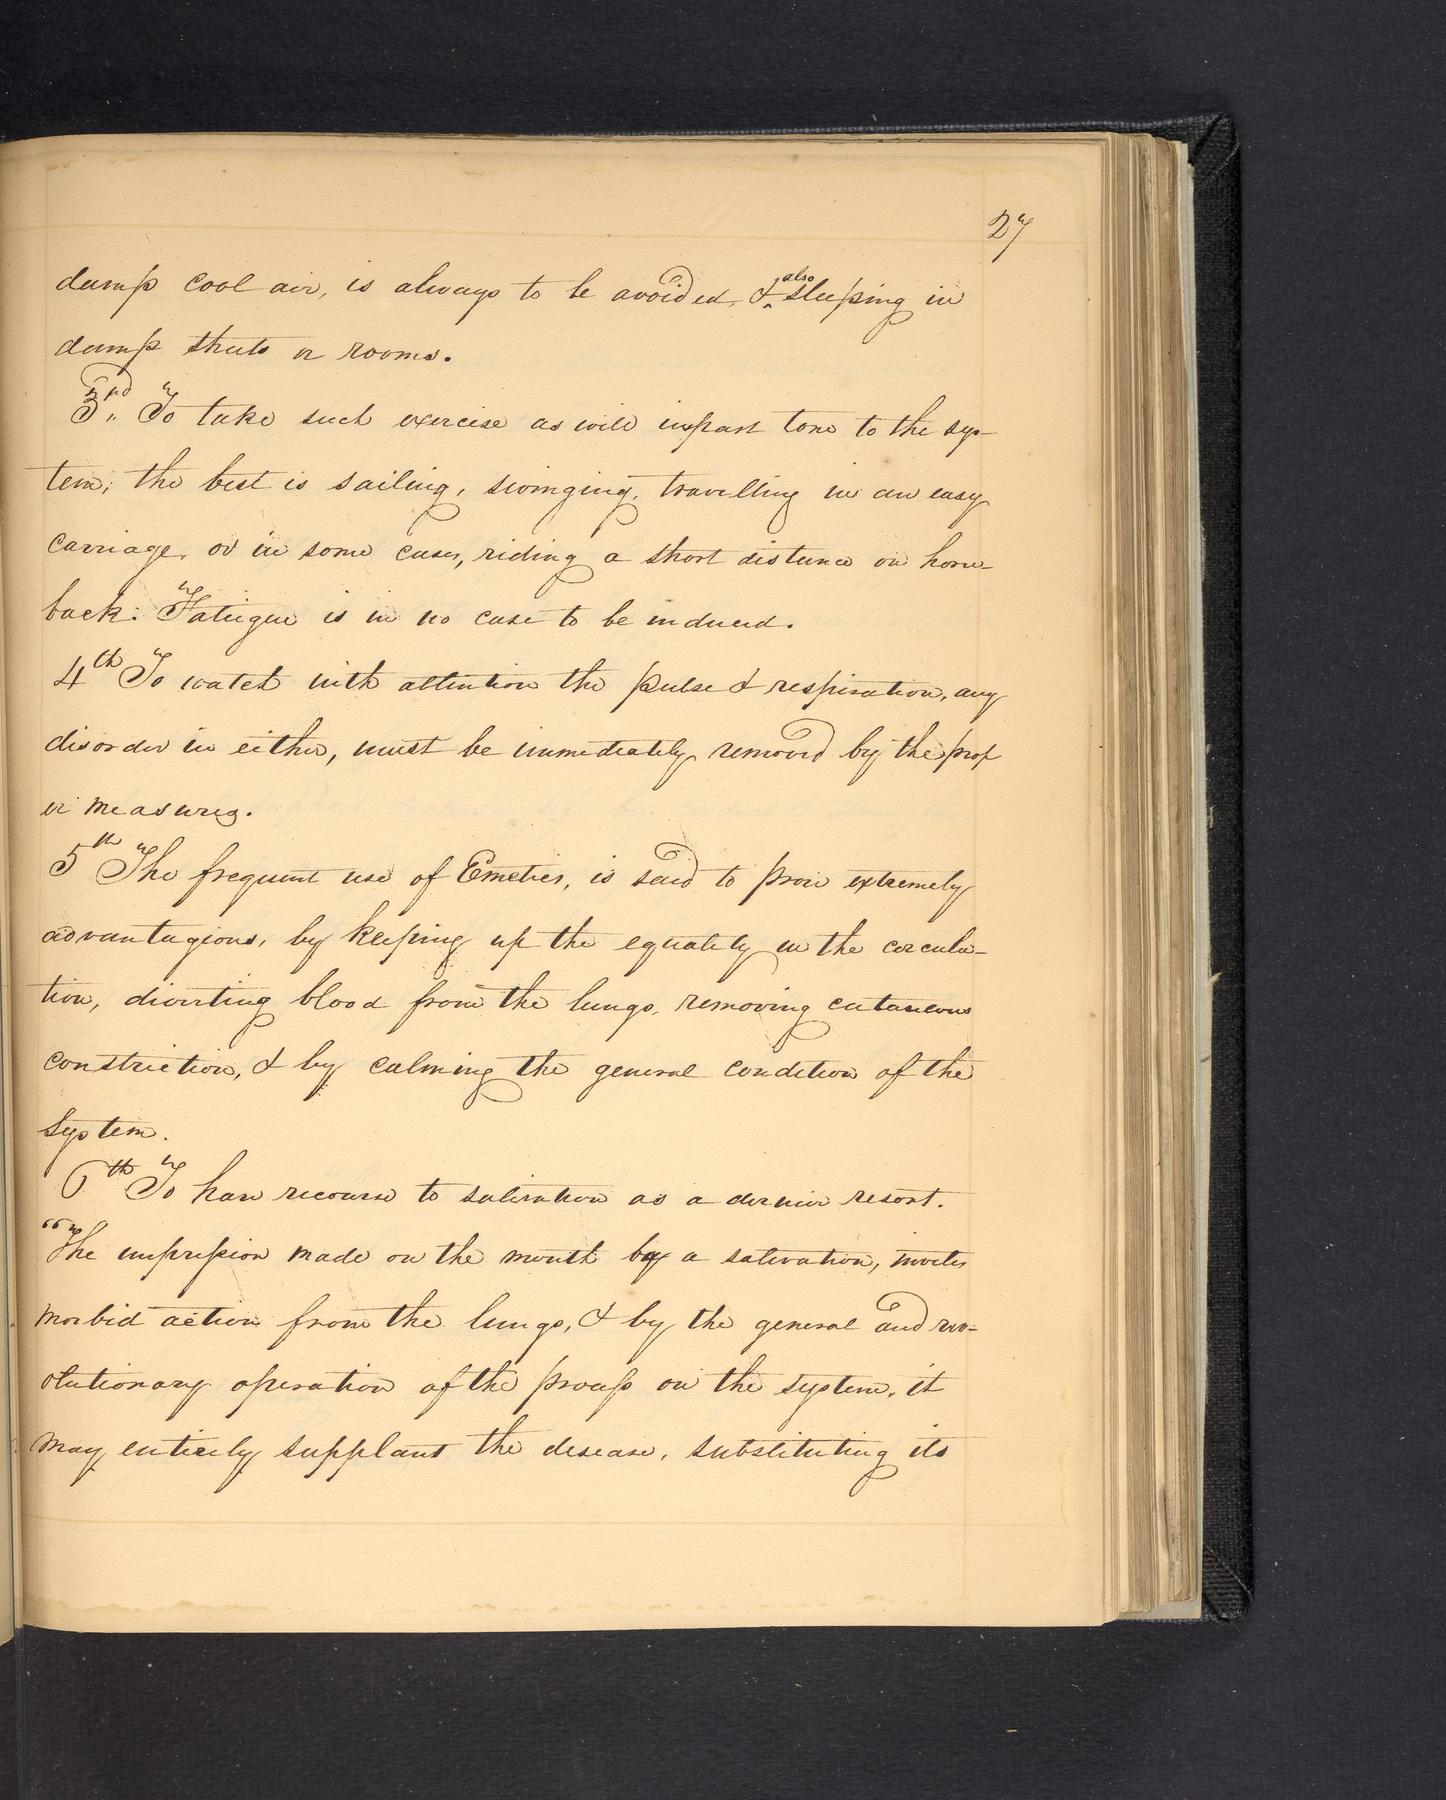 27
damp cool air, is always to be avoided, & also sleeping in
damp sheets or rooms.
3rd To take such exercise as will impart tone to the sys-
tem; the best is sailing, swinging, travelling in an easy
carriage, or in some cases, riding a short distance on horse-
back. Fatigue is in no case to be induced.
4th To watch with attention the pulse & respiration, any
disorder in either, must be immediately removed by the prop
er measures.
5th The frequent use of Emetics, is said to prove extremely
advantagious, by keeping up the equality in the circula-
tion, diverting blood from the lungs, removing cutaneous
constriction, & by calming the general condition of the
System.
6th To have recourse to salivation as a dernier resort.
"The impression made on the mouth by a salivation, invites
morbid action from the lungs, & by the general and rev-
olutionary operation of the process on the system, it
may entirely supplant the disease, substituting its